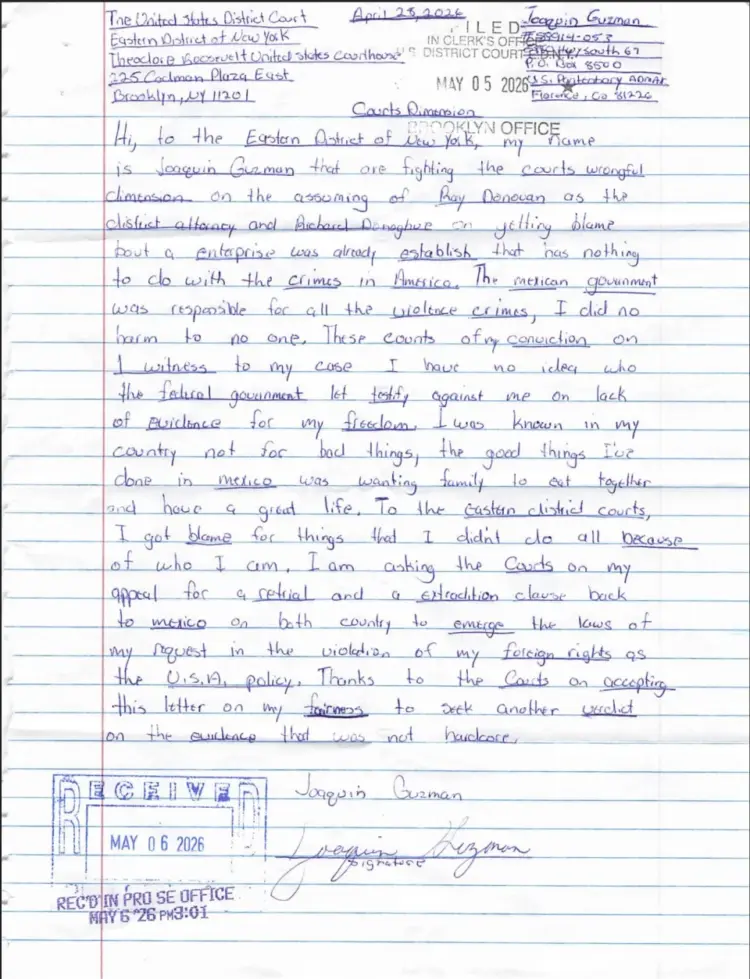 The United States District Court
Eastern District of New York
Theodore Roosevelt United States Courthouse
225 Cadman Plaza East
Brooklyn, NY 11201
April 28, 2026
FILED
IN CLERK'S OFFICE
DISTRICT COURT E.D.N.Y.
MAY 05 2026
BROOKLYN OFFICE
Joaquin Guzman
89914-053
South 67
P.O. Box 8500
U.S. Penitentiary ADMAX
Florence, Co 81226
Courts Dimension
Hi, to the Eastern District of New York, my name
is Joaquin Guzman that are fighting the courts wrongful
dimension on the assuming of Ray Donovan as the
district attorney and Richard Donoghue on getting blame
bout a enterprise was already establish that has nothing
to do with the crimes in America. The mexican government
was responsible for all the violence crimes, I did no
harm to no one. These counts of my conviction on
I witness to my case I have no idea who
the federal government let testify against me on lack
of evidence for my freedom. I was known in my
country not for bad things, the good things I've
done in mexico was wanting family to eat together
and have a great life. To the Eastern district courts,
I got blame for things that I didn't do all because
of who I am. I am asking the Courts on my
appeal for a retrial and a extradition clause back
to mexico on both country to emerge the laws of
my request in the violation of my foreign rights as
the U.S.A. policy. Thanks to the Courts on accepting
this letter on my fairness to seek another verdict
on the evidence that was not hardcore.
Joaquin Guzman
Joaquin Guzman
signature
RECEIVED
MAY 06 2026
REC'D IN PRO SE OFFICE
MAY 6 '26 PM3:01